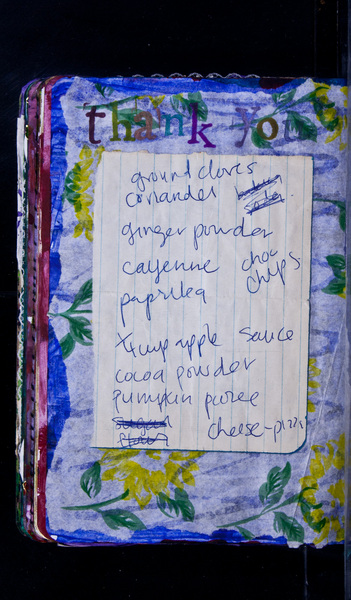 thank you
ground cloves
coriander
ginger powder
cayenne choc
chips
paprika
apple sauce
cocoa powder
pumpkin puree
cheese-pizza